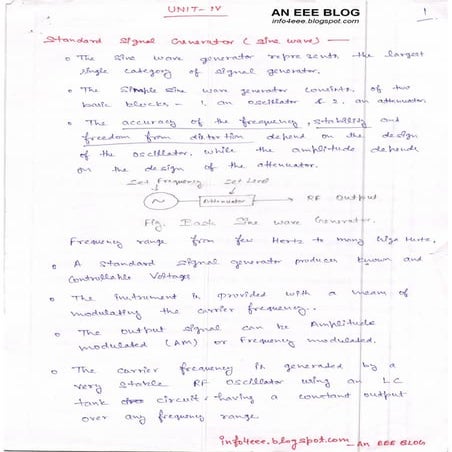 UNIT- IV
AN EEE BLOG
info4eee.blogspot.com
1
Standard Signal Generator ( Sine wave) —
The Sine wave generator represents the largest
single category of signal generator.
The Simple Sine wave generator consists of two
basic blocks - 1. an oscillator & 2. an attenuator.
The accuracy of the frequency, stability and
freedom from distortion depend on the design
of the oscillator, while the amplitude depends
on the design of the attenuator.
Set Frequency Set Level
~ Attenuator RF Output
Fig. Basic Sine wave Generator.
Frequency range from few Hertz to many Giga Hertz.
A Standard signal generator produces known and
Controllable Voltages
The instrument is provided with a mean of
modulating the carrier frequency..
The output signal can be Amplitude
modulated (AM) or Frequency modulated.
The Carrier frequency is generated by a
very stable RF Oscillator using an LC
tank circuit, having a constant output
over any frequency range
info4eee.blogspot.com - An EEE BLOG